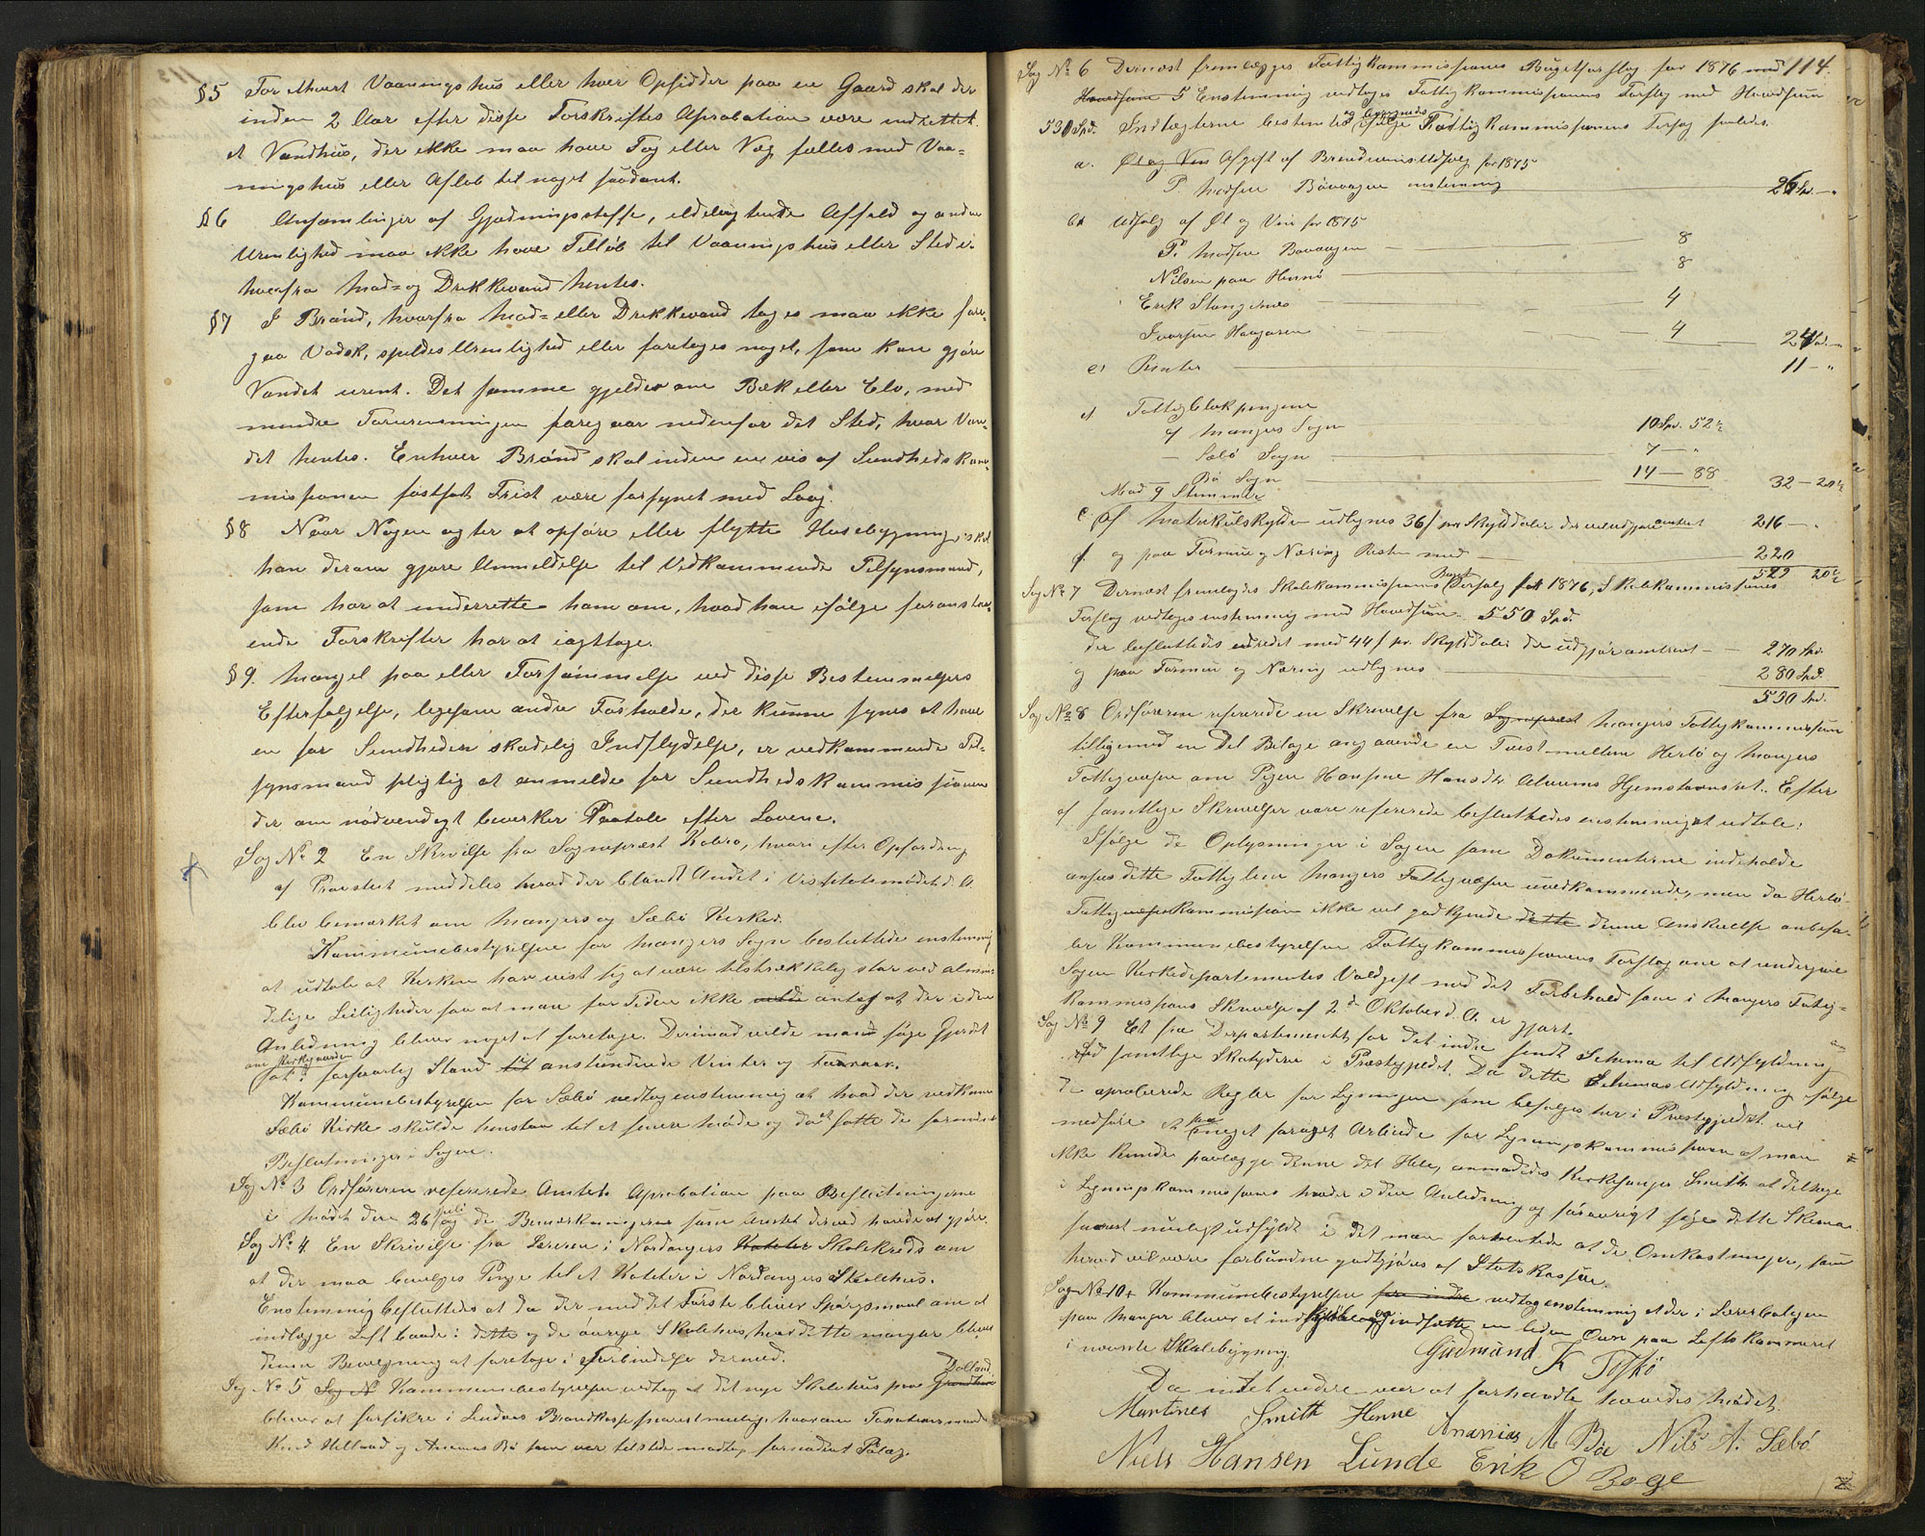 §5 For ethvert Vaaningshus eller hver Opsidder paa en Gaard skal der
inden 2 Aar efter disse Forskrifters Aprobation være indrettet
et Vandhus, der ikke maa have Tag eller Væg fælles med Vaa-
ningshus eller Afløb til noget saadant.
§6 Ansamlinger af Gjødningsstoffe, ildelugtende Affald og anden
Urenlighed maa ikke have Tilløb til Vaaningshus eller Sted i
hvorfra Mad- og Drikkevand hentes.
§7 I Brønd, hvorfra Mad- eller Drikkevand tages maa ikke fore-
gaa Vadsk, spildes Urenlighed eller foretages noget, som kan gjøre
Vandet urent. Det samme gjelder om Bæk eller Elv, med
mindre Forureningen foregaar nedenfor det Sted, hvor Van-
det hentes. Enhver Brønd skal inden en vis af Sundhedskom-
missionen fastsat Frist være forsynet med Laag.
§8 Naar Nogen agter at opføre eller flytte Husebygninger skal
han derom gjøre Anmeldelse til Vedkommende Tilsynsmand,
som har at underrette ham om, hvad han ifølge foranstaa-
ende Forskrifter har at iagttage.
§9. Mangel paa eller Forsømmelse ved disse Bestemmelsers
Efterfølgelse, ligesom andre Forholde, der kunne synes at have
en for Sundheden skadelig Indflydelse, er vedkommende Til-
synsmand pligtig at anmelde for Sundhedskommissionen
der om nødvendigt bevirker Paatale efter Lovene.
Sag No 2 En Skrivelse fra Sognepræst Kobro, hvori efter Opfordring
af Provsten meddeles hvad der blandt Andet i Visitatsmødet d. A.
blev bemærket om Mangers og Sæbø Kirker.
Kommunebestyrelsen for Mangers Sogn besluttede enstemmig
at udtale at Kirken har vist sig at være tilstrækkelig stor ved almin-
delige Leiligheder saa at man for Tiden ikke antog at der i den
Anledning bliver noget at foretage. Derimod vilde man søge Gjerdet
om Kirkegaarden
sat i forsvarlig Stand til anstundende Vinter og Foraar.
Kommunebestyrelsen for Sæbø vedtog enstemmig at hvad der vedkom
Sæbø Kirke skulde henstaa til et senere Møde og da at fatte de fornødne
Beslutninger i Sagen.
Sag No 3 Ordføreren refererede Amtets Aprobation paa Beslutningerne
i Mødet den 26 Juli og de Bemærkninger som Amtet derved havde at gjøre.
Sag No 4. En Skrivelse fra Læreren i Nordangers Skolekreds om
at der maa bevilges Penge til et Kateter i Nordangers Skolehus.
Enstemmig besluttedes at da der med det Første bliver Spørgsmaal om at
indlægge Loft baade i dette og de øvrige Skolehus, hvor dette mangler bliver
denne Bevilgning at foretage i Forbindelse dermed.
Dalland
Sag No 5 Kommunebestyrelsen vedtog at det nye Skolehus paa
bliver at forsikre i Lindaas Brandkasse snarest mulig, hvorom Taxationsmænd
Knud Helland og Ananias Bø som var tilstede modtog fornødent Pålæg.
114.
Sag No 6 Dernæst fremlægges Fattigkommissionens Budgetforslag for 1876 med
Hovedsum Enstemmig vedtoges Fattigkommissionens Forslag med Hovedsum
530 Spd. Indtægterne bestemtes ifølge Fattigkommissionens Forslag saaledes
a. Afgift af Brændevinsudsalg for 1875
P. Madsen Bøvaagen enstemmig 26 Spd. — "
b. Udsalg af Øl og Vin for 1875
P. Madsen Bøvaagen — 8
Nilsen paa Hennø — 8
Erik Stangenes — 4
Ivarsen Haagaren — 4 — 24 Spd. —
c. Renter — 11 — "
d. Fattigblokpengene
af Mangers Sogn 10 Spd. 52 ½
— Sæbø Sogn 7 — "
Bø Sogn 14 — 88 32 — 20 ½
Mod 9 Stemmer
e. Af Matrikulskylden udlignes 36/ pr Skylddaler der udgjøre omtrent 216 — "
f. og paa Formue og Næring Resten med — 220
529 20 ½
Sag No 7 Dernæst fremlagdes Skolekommissionens Budgetforslag for 1876, Skolekommissionens
Forslag vedtoges enstemmig med Hovedsum 550 Spd.
der besluttedes udredet med 44/ pr. Skylddaler der udgjør omtrent — 270 Spd.
og paa Formue og Næring udlignes — 280 Spd.
550 Spd.
Sag No 8 Ordføreren refererede en Skrivelse fra Mangers Fattigkommission
tilligemed en Del Bilage angaaende en Tvist mellem Herlø og Mangers
Fattigvæsen om Pigen Hansine Hansdtr Alvums Hjemstavnsret. Efter
at samtlige Skrivelser vare refererede besluttedes enstemmigt at udtale:
Ifølge de Oplysninger i Sagen som Dokumenterne indeholde
ansees dette Fattiglem Mangers Fattigvæsen uvedkommende, men da Herlø
Fattigkommission ikke vil godkjende denne Anskuelse anbefa-
ler Kommunebestyrelsen Fattigkommissionens Forslag om at undergive
Sagen Kirkedepartementets Voldgift med det Forbehold som i Mangers Fattig-
kommissions Skrivelse af 2d Oktober d. A. er gjort.
Sag No 9 Et fra Departementet for det indre sendt Schema til Udfyldning
ved samtlige Skatydere i Præstegjeldet. Da dette Schemas Udfyldning ifølge
de aproberede Regler for Ligningen som befølges her i Præstegjeldet vil
medføre et saa meget forøget Arbeide for Ligningskommissionen at man
ikke kunde paalægge denne det Hele, anmodedes Kirkesanger Smith at deltage
i Ligningskommissionens Møder i den Anledning og forøvrigt søge dette Skema
snarest muligt udfyldt i det man forventede at de Omkostninger, som
herved vil være forbundne godtgjøres af Statskassen.
Sag No 10. Kommunebestyrelsen vedtog enstemmig at der i Lærerboligen
paa Manger bliver at indkjøbe og indsætte en liden Ovn paa Loftskammeret
i nævnte Skolebygning.
Gudmund K Toskø
Da intet videre var at forhandle hævedes Mødet.
Martines Smith Henne Ananias M Bø Nils A. Sæbø
Niels Hansen Lunde Erik O Boge